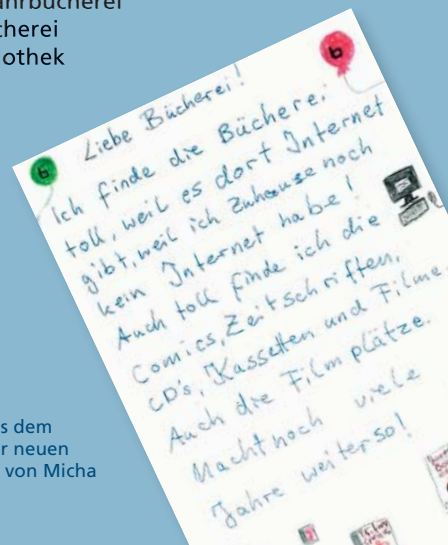 ahrbücherei
cherei
othek
6
6
Liebe Bücherei!
Ich finde die Bücherei
toll, weil es dort Internet
gibt, weil ich Zuhause noch
kein Internet habe!
Auch toll finde ich die
Comics, Zeitschriften,
CD's, Kassetten und Filme.
Auch die Filmplätze.
Macht noch viele
Jahre weiterso!
s dem
r neuen
von Micha